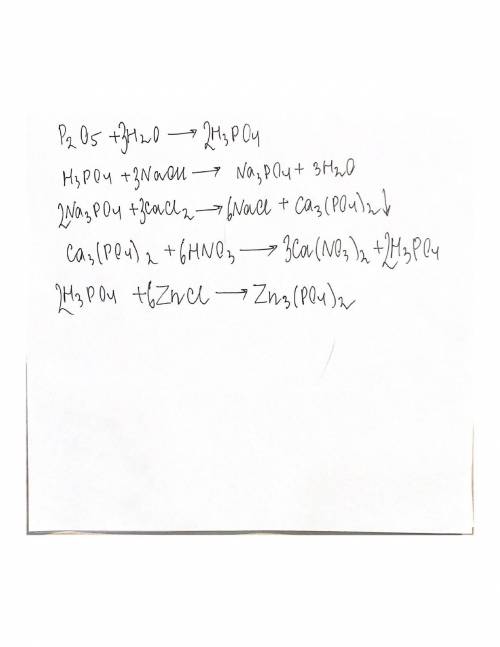 P₂O₅ + 3H₂O → 2H₃PO₄
H₃PO₄ + 3NaOH → Na₃PO₄ + 3H₂O
2Na₃PO₄ + 3CaCl₂ → 6NaCl + Ca₃(PO₄)₂↓
Ca₃(PO₄)₂ + 6HNO₃ → 3Ca(NO₃)₂ + 2H₃PO₄
2H₃PO₄ + 6ZnCl → Zn₃(PO₄)₂